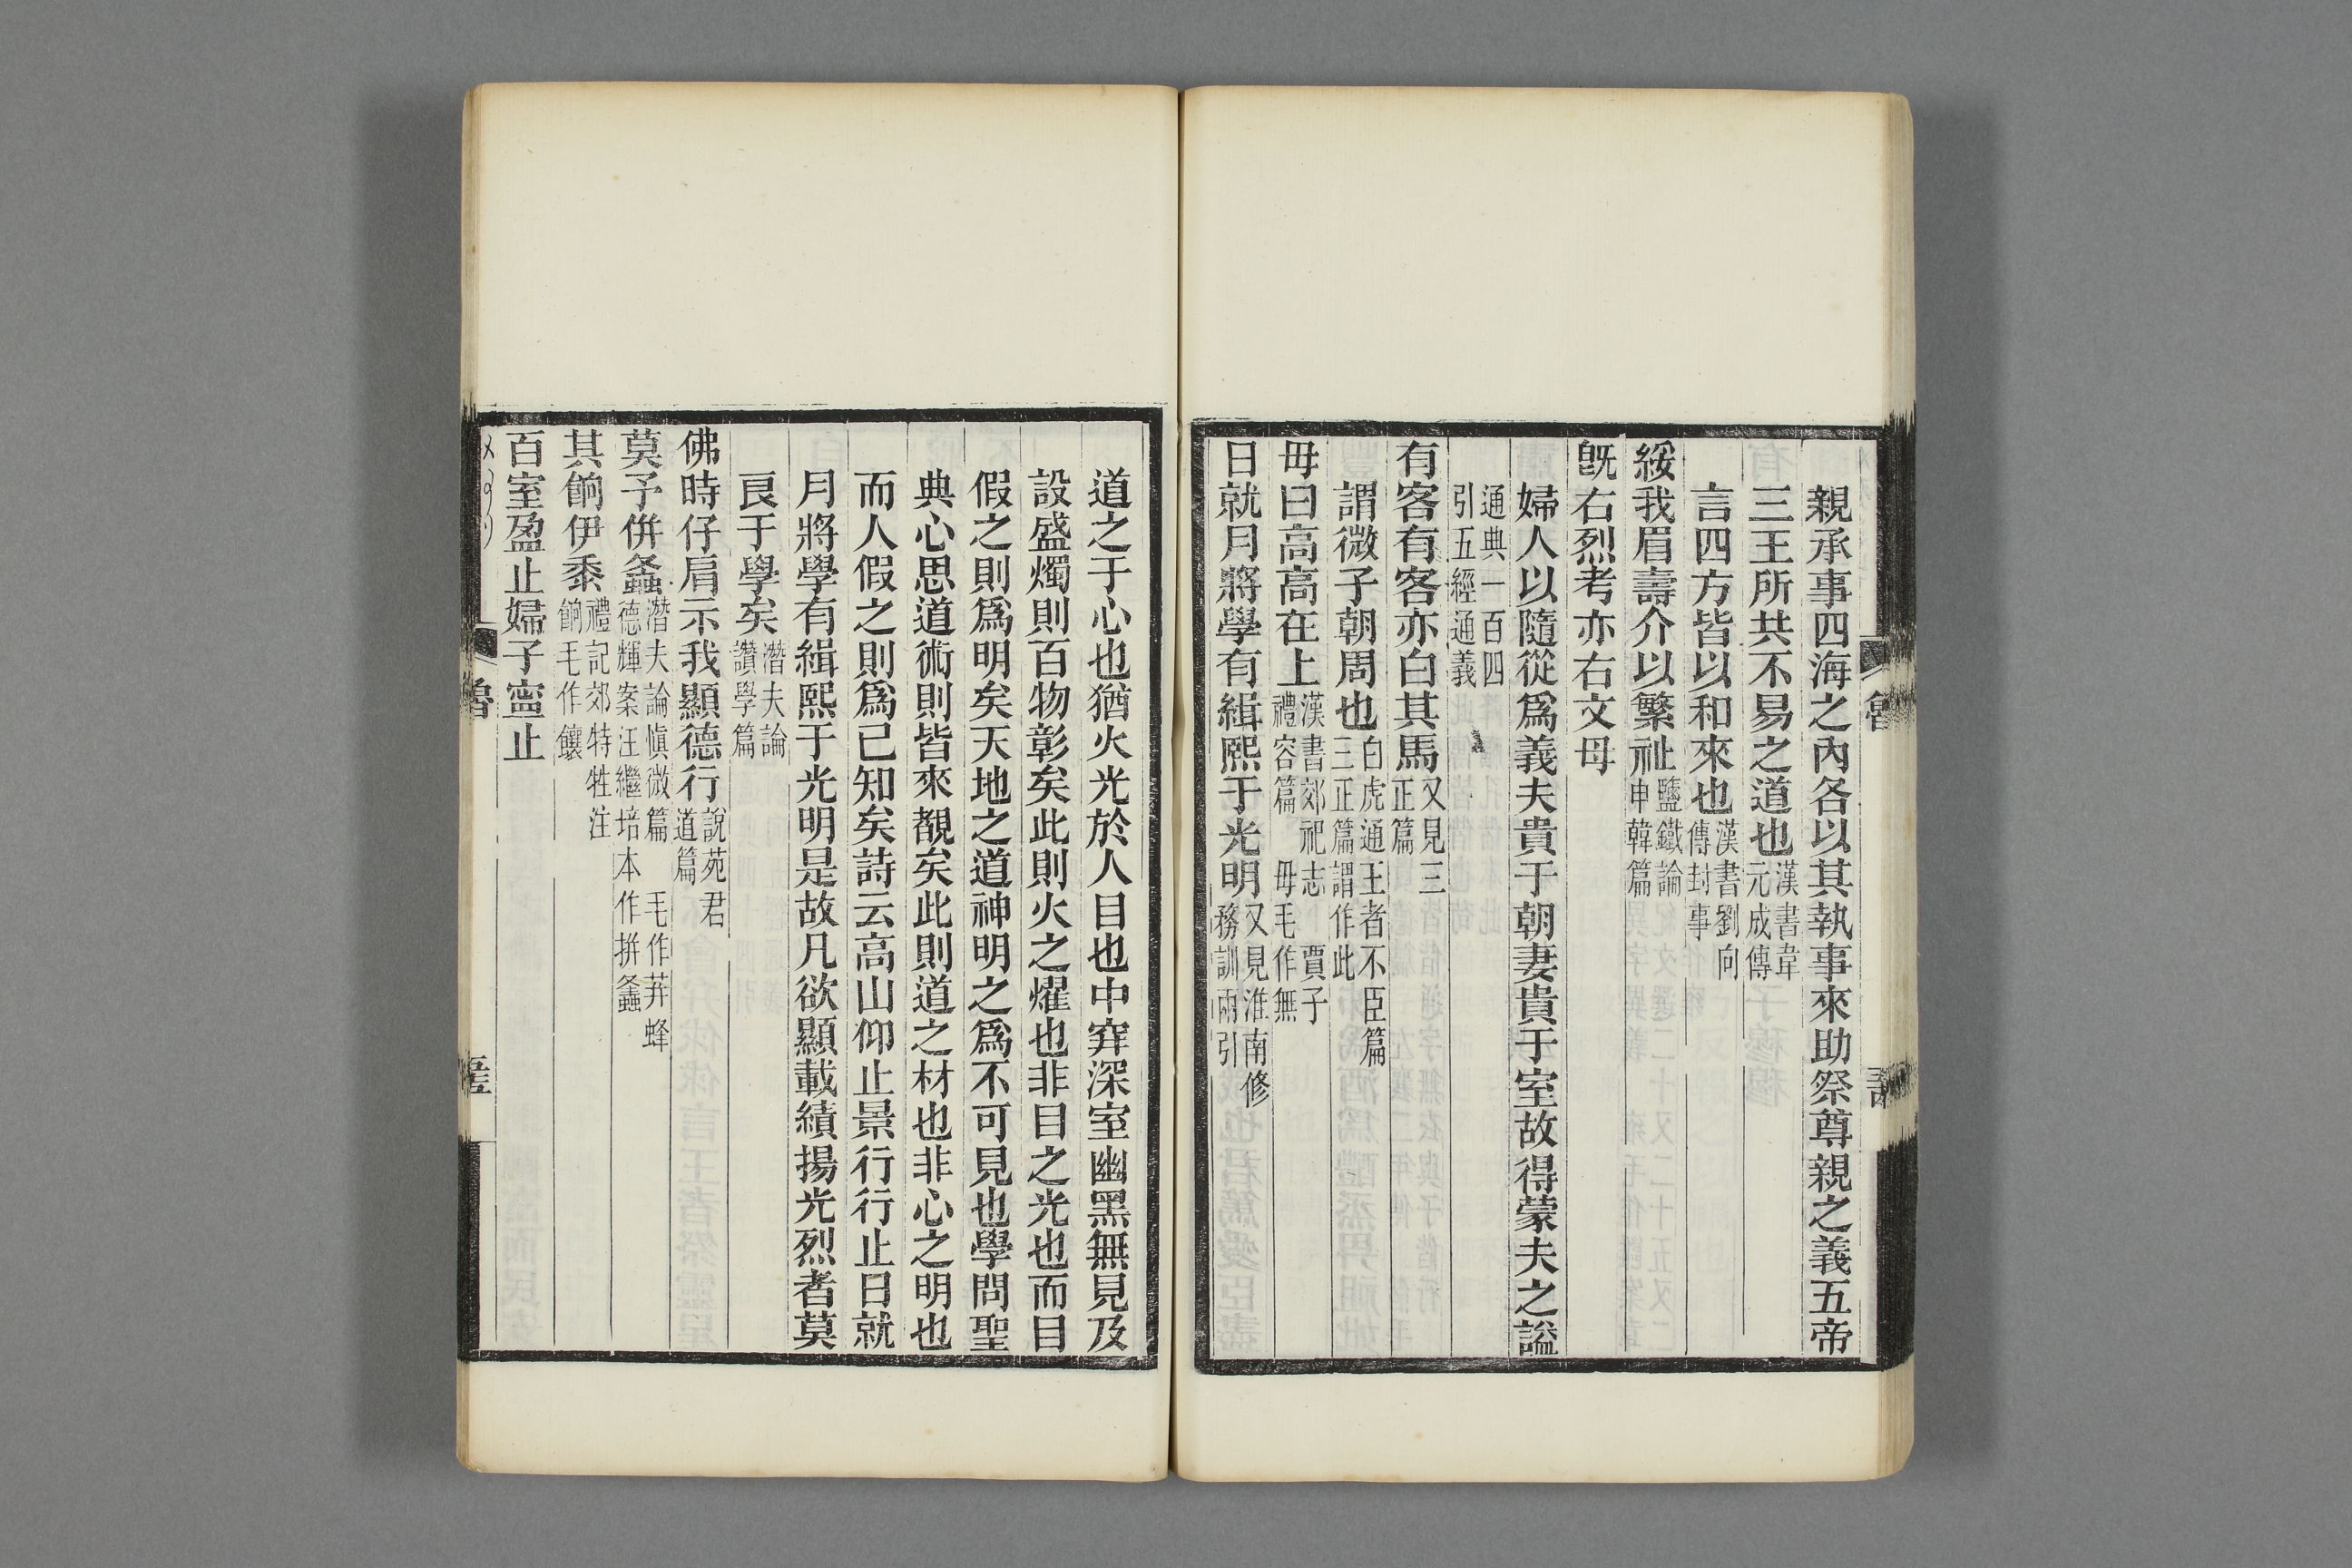 親承事四海之內各以其執事來助祭尊親之義五帝
三王所共不易之道也漢書韋元成傳
言四方皆以和來也漢書劉向傳封事
綏我眉壽介以繁祉鹽鐵論申韓篇
旣右烈考亦右文母
婦人以隨從爲義夫貴于朝妻貴于室故得蒙夫之謚
通典一百四引五經通義
有客有客亦白其馬又見三正篇
謂微子朝周也白虎通王者不臣篇三正篇謂作此
毋曰高高在上漢書郊祀志賈子禮容篇毋毛作無
日就月將學有緝熙于光明又見淮南修務訓兩引
道之于心也猶火光於人目也中穽深室幽黑無見及
設盛燭則百物彰矣此則火之燿也非目之光也而目
假之則爲明矣天地之道神明之爲不可見也學問聖
典心思道術則皆來覩矣此則道之材也非心之明也
而人假之則爲己知矣詩云高山仰止景行行止日就
月將學有緝熙于光明是故凡欲顯載績揚光烈者莫
良于學矣潛夫論讚學篇
佛時仔肩示我顯德行說苑君道篇
莫予倂螽潛夫論愼微篇毛作荓蜂德輝案汪繼培本作拼螽
其餉伊黍禮記郊特牲注餉毛作饟
百室盈止婦子寍止
魯